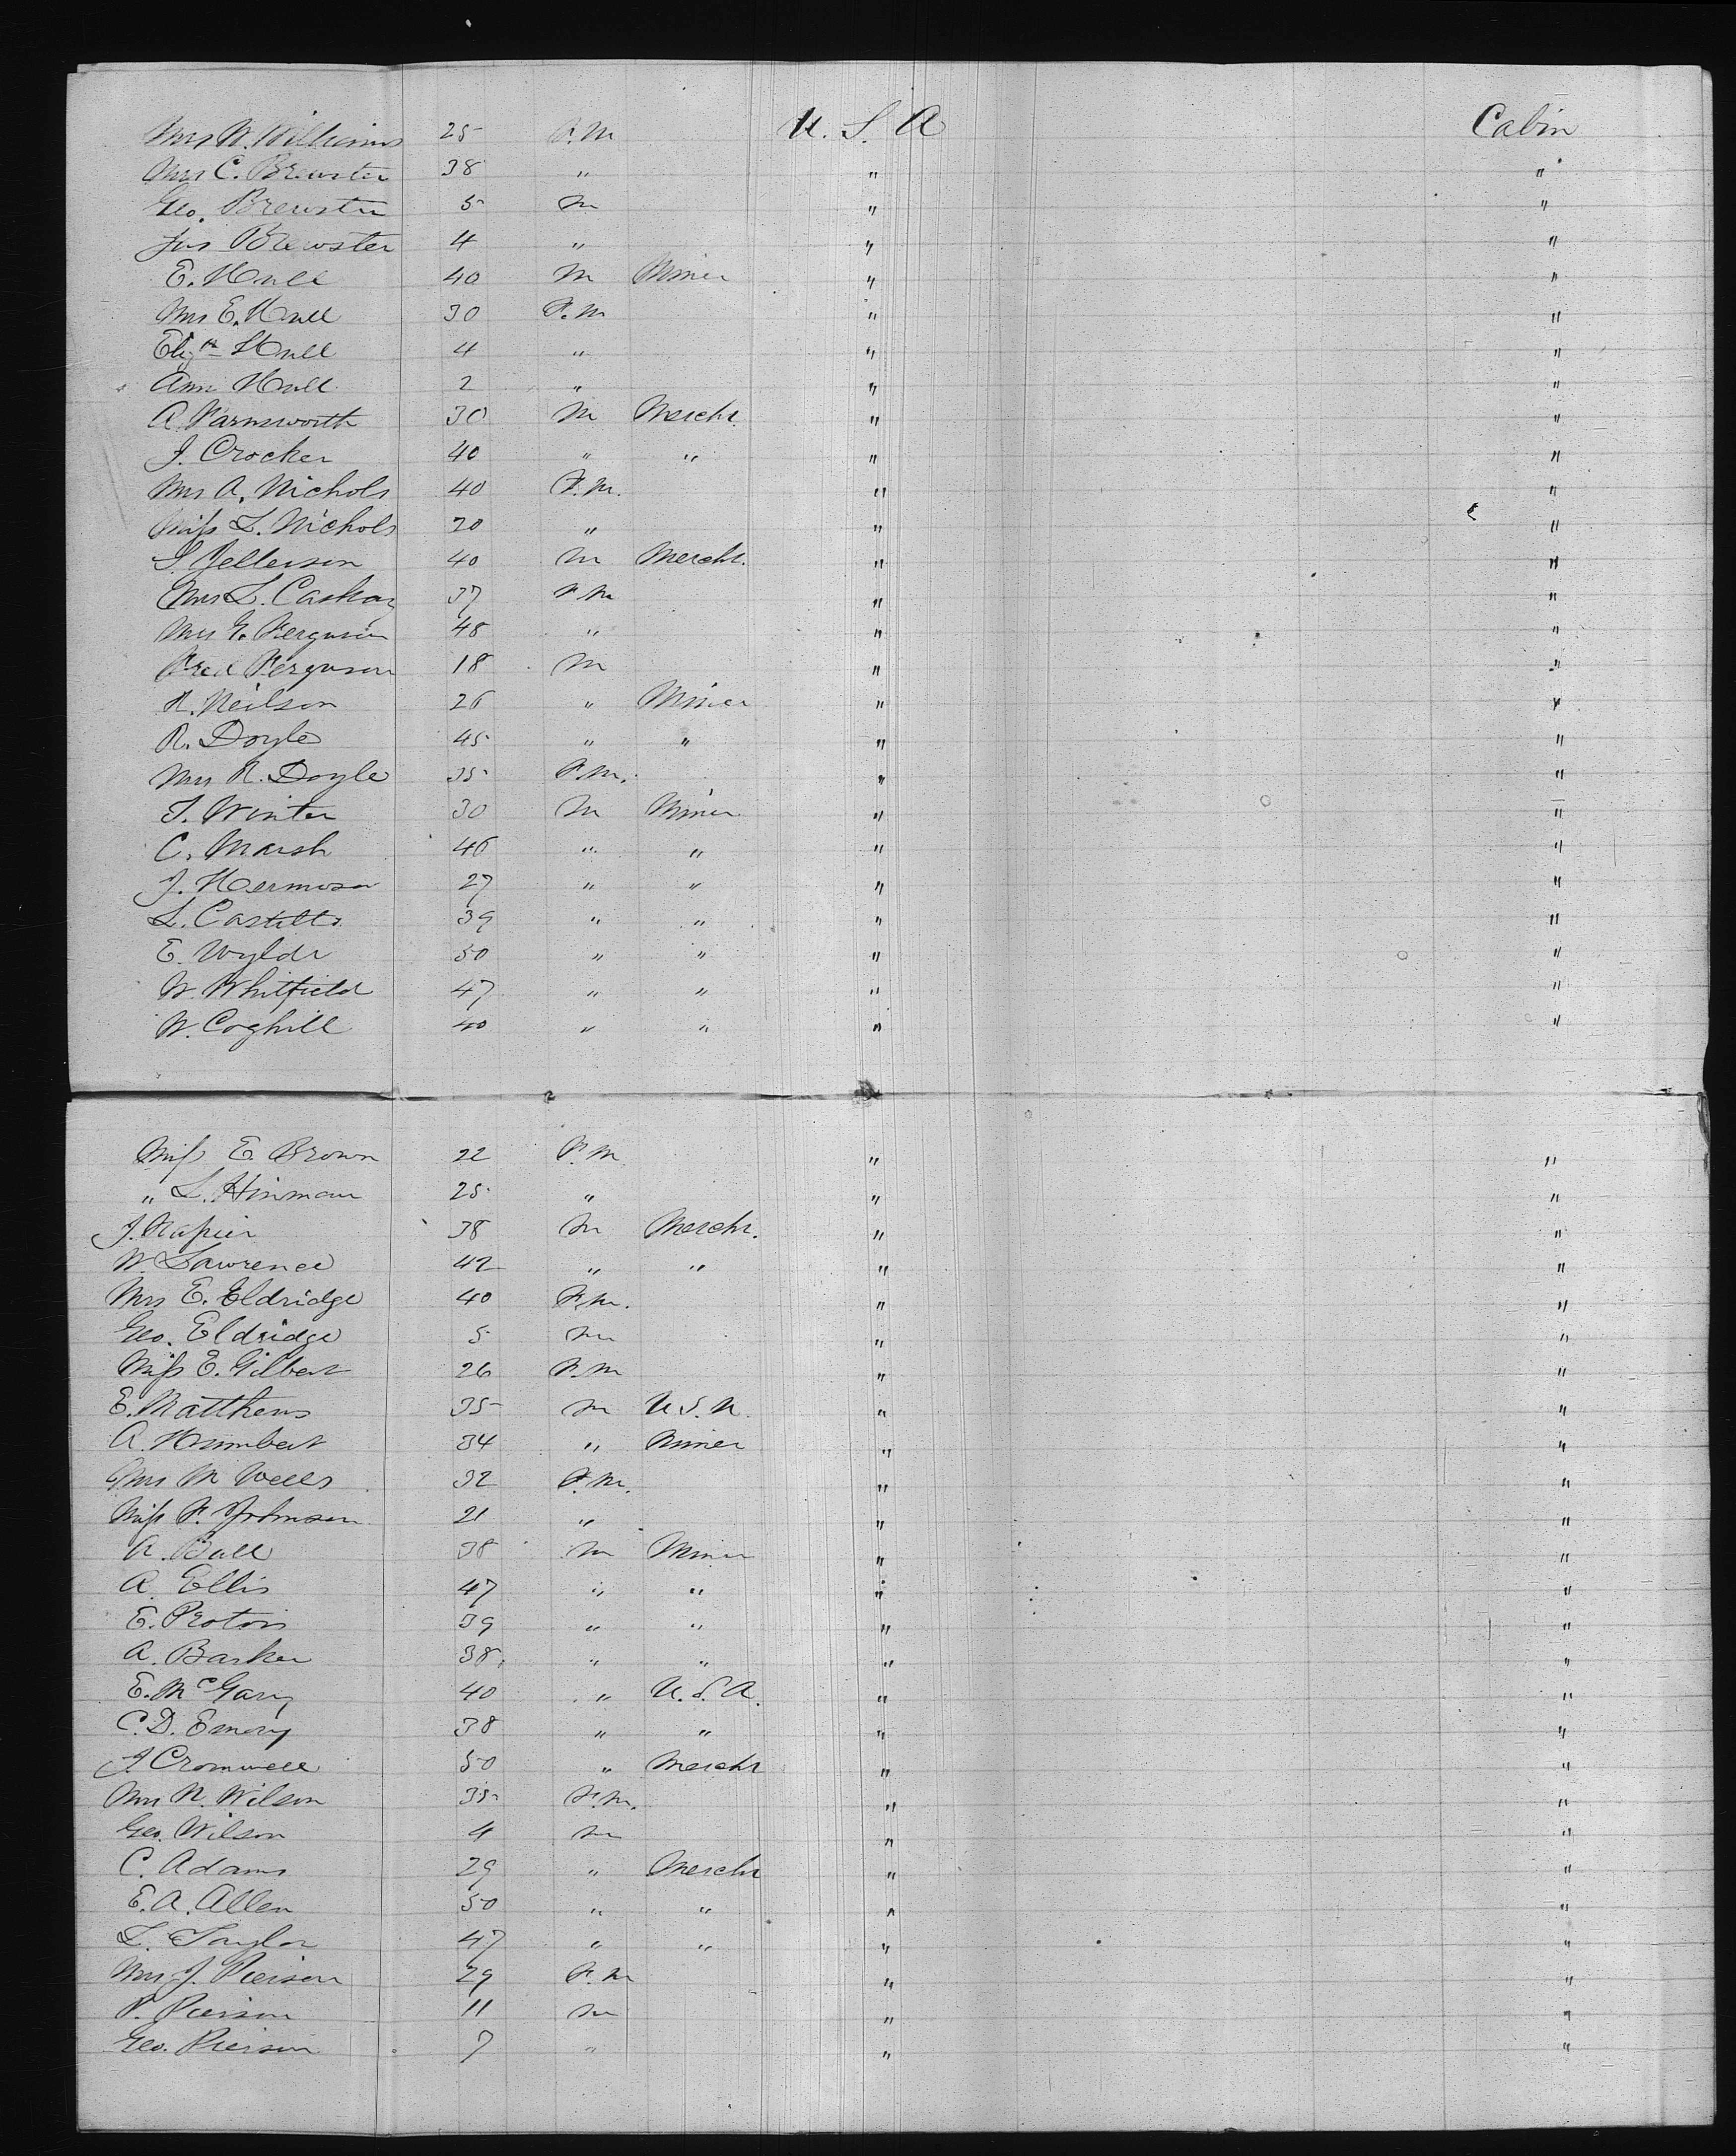 Mrs W. Williams 25 F.M U. S. A Cabin
Mrs C. Brewster 38 " " "
Geo. Brewster 5 M " "
Jas Brewster 4 " " "
E. Hall 40 M Miner " "
Mrs E. Hall 30 F.M " "
Elizth Hall 4 " " "
Ann Hall 2 " " "
A Farnsworth 30 M Mercht. " "
J. Crocker 40 " " " "
Mrs A. Nichols 40 F.M. " "
Miss L. Nichols 20 " " "
S. Jellerson 40 M Mercht. " "
Mrs L. Caskay 37 F.M " "
Mrs G. Ferguson 48 " " "
Fred Ferguson 18 M " "
R. Neilson 26 " Miner " "
R. Doyle 45 " " " "
Mrs R. Doyle 35 F.M. " "
T. Winter 30 M Miner " "
C. Marsh 46 " " " "
J. Hermosa 27 " " " "
L. Castillo 39 " " " "
E. Wylde 50 " " " "
W. Whitfield 47 " " " "
W. Coghill 40 " " " "
Miss E Brown 22 F.M. " "
" L. Hinman 25 " " "
J. Napier 38 M Mercht. " "
W. Lawrence 42 " " " "
Mrs E. Eldridge 40 F.M. " "
Geo. Eldridge 5 M " "
Miss E. Gilbert 26 F.M " "
E. Matthews 35 M U.S.N. " "
A. Humbert 34 " Miner " "
Mrs M Wells 32 F.M. " "
Miss F. Johnson 21 " " "
A. Ball 38 M Miner " "
A. Ellis 47 " " " "
E. 39 " " " "
A. Barker 38 " " " "
E. McGary 40 " U.S.A. " "
C. D. Emory 38 " " " "
J Cromwell 50 " Mercht " "
Mrs N. Wilson 35 F.M. " "
Geo. Wilson 4 M " "
C. Adams 29 " Mercht " "
E. A. Allen 50 " " " "
L. Taylor 47 " " " "
Mrs J. Pierson 29 F.M " "
P. Pierson 11 M " "
Geo. Pierson 7 " " "